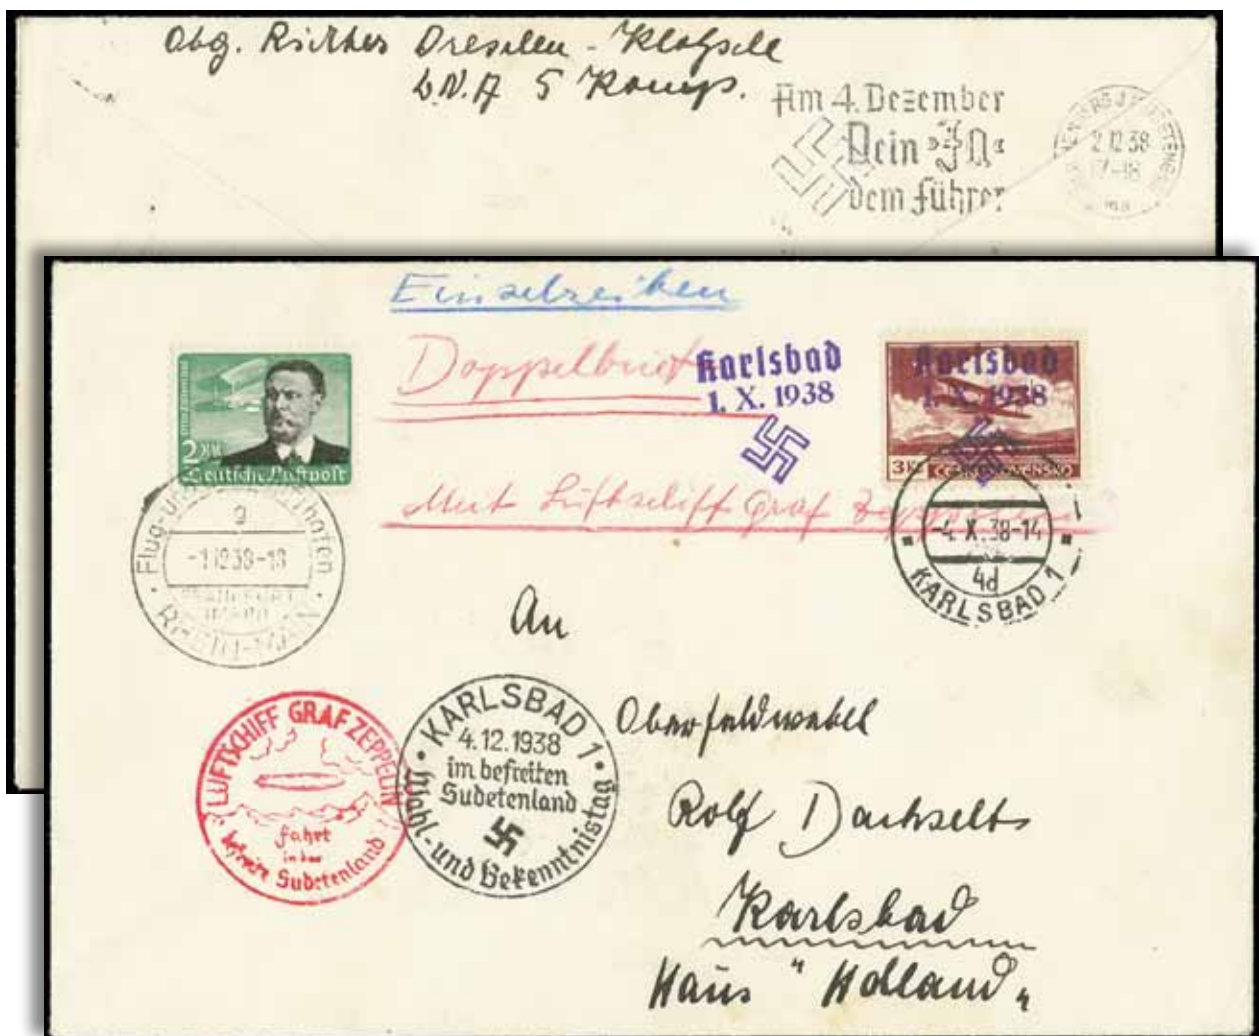 Abg. Richter Dresden - Klotzsche
L.N.A 5 Komp.
Am 4. Dezember
Dein "Ja"
dem Führer
2.12.38
17-18
Einschreiben
Doppelbrief
Karlsbad
1. X. 1938
Karlsbad
1. X. 1938
2 RM
Deutsche Luftpost
3 Kč
ČESKOSLOVENSKO
Mit Luftschiff Graf Zeppelin
Flug- und Luftschiffhafen
g
-1.12.38-18
FRANKFURT
(MAIN)
RHEIN-MAIN
-4.X.38-14
4d
KARLSBAD 1
An
LUFTSCHIFF GRAF ZEPPELIN
Fahrt
in das
befreite Sudetenland
KARLSBAD 1
4.12.1938
im befreiten
Sudetenland
Wahl- und Bekenntnistag
Oberfeldwebel
Rolf Dachselt
Karlsbad
Haus "Holland"